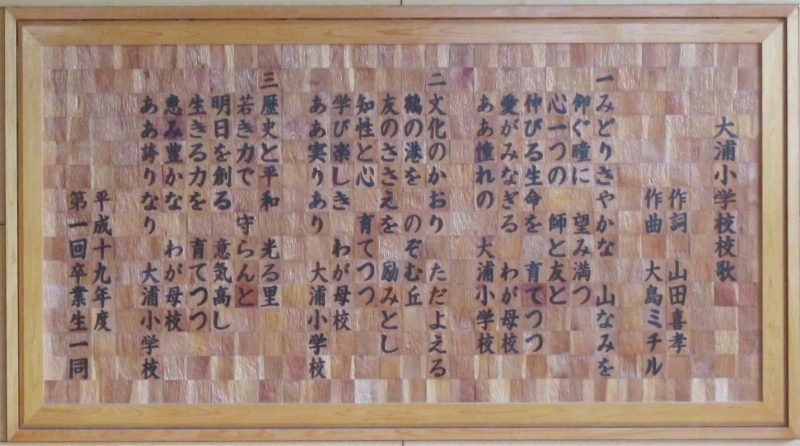 大浦小学校校歌
作詞　山田喜孝
作曲　大島ミチル
一みどりさやかな　山なみを
仰ぐ瞳に　望み満つ
心一つの　師と友と
伸びる生命を　育てつつ
愛がみなぎる　わが母校
ああ憧れの　大浦小学校
二文化のかおり　ただよえる
鶴の港を　のぞむ丘
友のささえを　励みとし
知性と心　育てつつ
学び楽しき　わが母校
ああ実りあり　大浦小学校
三歴史と平和　光る里
若き力で　守らんと
明日を創る　意気高し
生きる力を　育てつつ
恵み豊かな　わが母校
ああ誇りなり　大浦小学校
平成十九年度
第一回卒業生一同